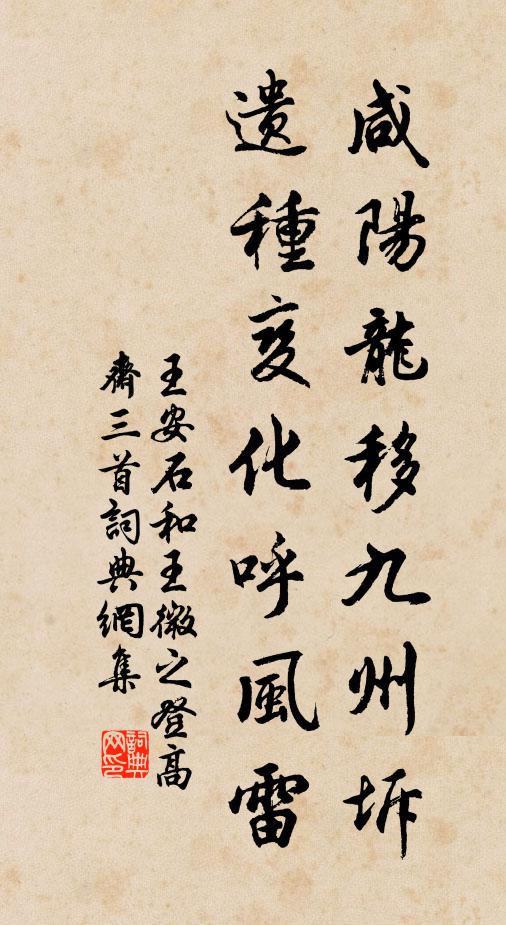 咸陽龍移九州坼
遺種變化呼風雷
王安石和王微之登高
齋三首詞典網集
詞典
网印